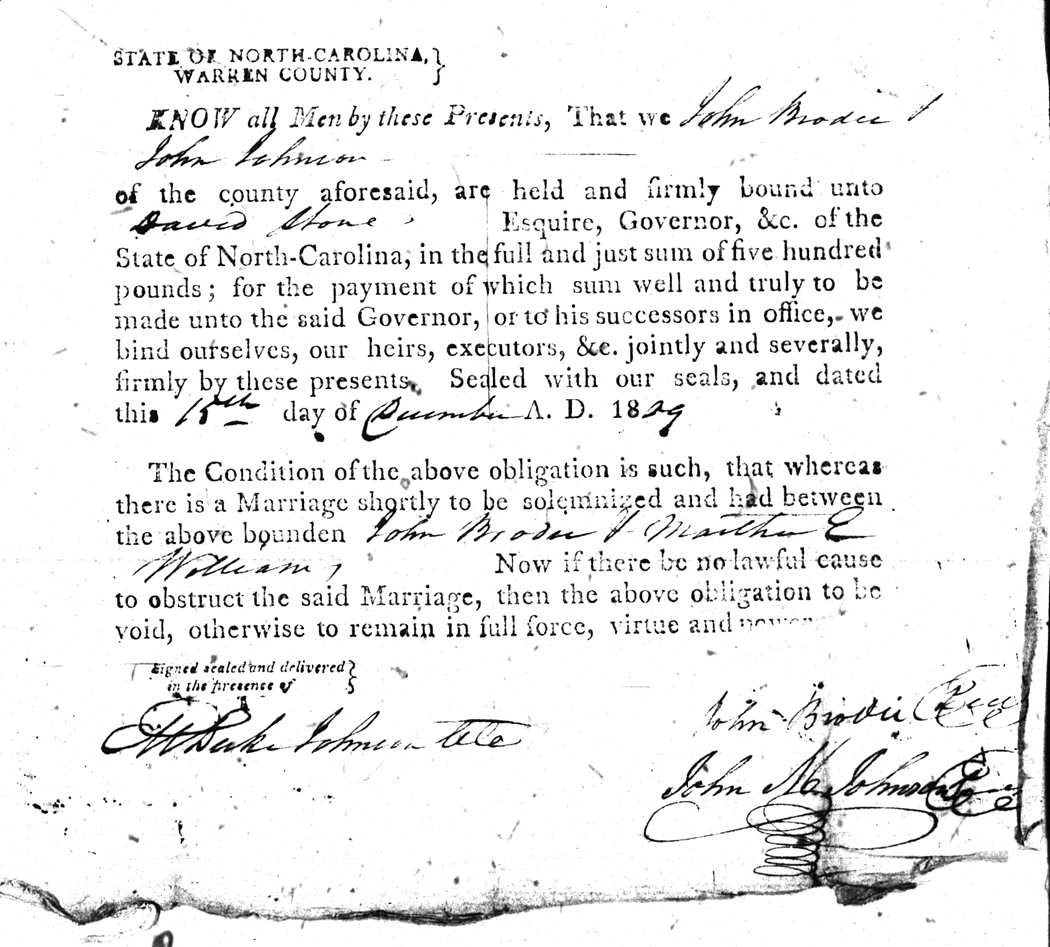 STATE OF NORTH-CAROLINA,}
WARREN COUNTY. }
KNOW all Men by these Presents, That we John Brodie &
John Johnson
of the county aforesaid, are held and firmly bound unto
David Stone Esquire, Governor, &c. of the
State of North-Carolina, in the full and just sum of five hundred
pounds; for the payment of which sum well and truly to be
made unto the said Governor, or to his successors in office, we
bind ourselves, our heirs, executors, &c. jointly and severally,
firmly by these presents. Sealed with our seals, and dated
this 15th day of December A. D. 1809
The Condition of the above obligation is such, that whereas
there is a Marriage shortly to be solemnized and had between
the above bounden John Brodie & Martha E
Williams, Now if there be no lawful cause
to obstruct the said Marriage, then the above obligation to be
void, otherwise to remain in full force, virtue and power
Signed sealed and delivered }
in the presence of }
John Brodie Seal
Johnson
John Johnson Seal